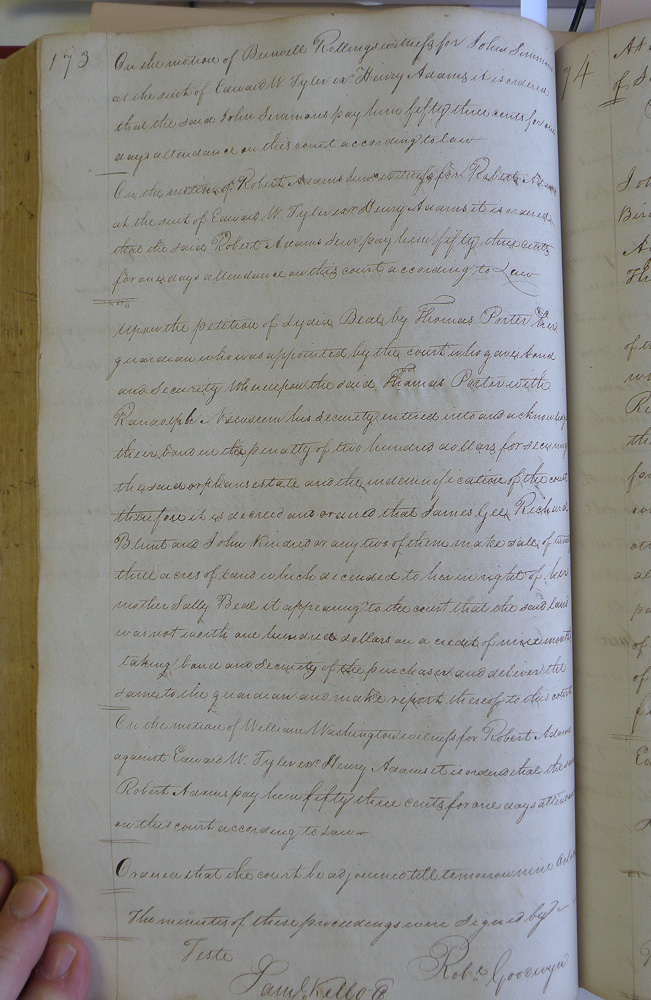 173
On the motion of Burwell Rollings witness for John Simmons
at the suit of Edward W. Tyler exr Henry Adams it is ordered
that the said John Simmons pay him fifty three cents for one
days attendance on this court according to law
On the motion of Robert Adams Junr witness for Robert Adams
at the suit of Edward W. Tyler exr Henry Adams it is ordered
that the said Robert Adams Senr pay him fifty three cents
for one days attendance on this court according to Law
Upon the petition of Lydia Beal by Thomas Porter her
guardian who was appointed by the court who gave bond
and Security Whereupon the said Thomas Porter with
Randolph Newsom his security entered into and acknowledged
their bond in the penalty of two hundred dollars for securing
the said orphans estate and the indemnification of the court
therefore it is decreed and ordered that James Gee, Richard
Blunt and John Kindred or any two of them make sale of
three acres of land which decended to her in right of her
mother Sally Beal it appearing to the court that the said land
was not worth one hundred dollars on a credit of nine months
taking bond and Security of the purchaser and deliver the
same to the guardian and make report thereof to this court
On the motion of William Washington witness for Robert Adams
against Edward W. Tyler exr Henry Adams it is ordered that the said
Robert Adams pay him fifty three cents for one days attendance
on this court according to Law
Ordered that the court be adjourned till tomorrow nine
The minutes of these proceedings were Signed by
Teste
Saml Kello C
Robt Goodwyn
74